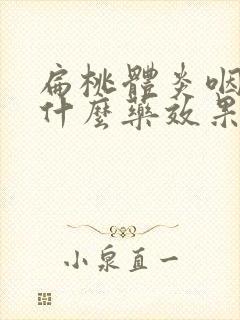 扁桃體炎咽
什麼藥效果
小泉直一